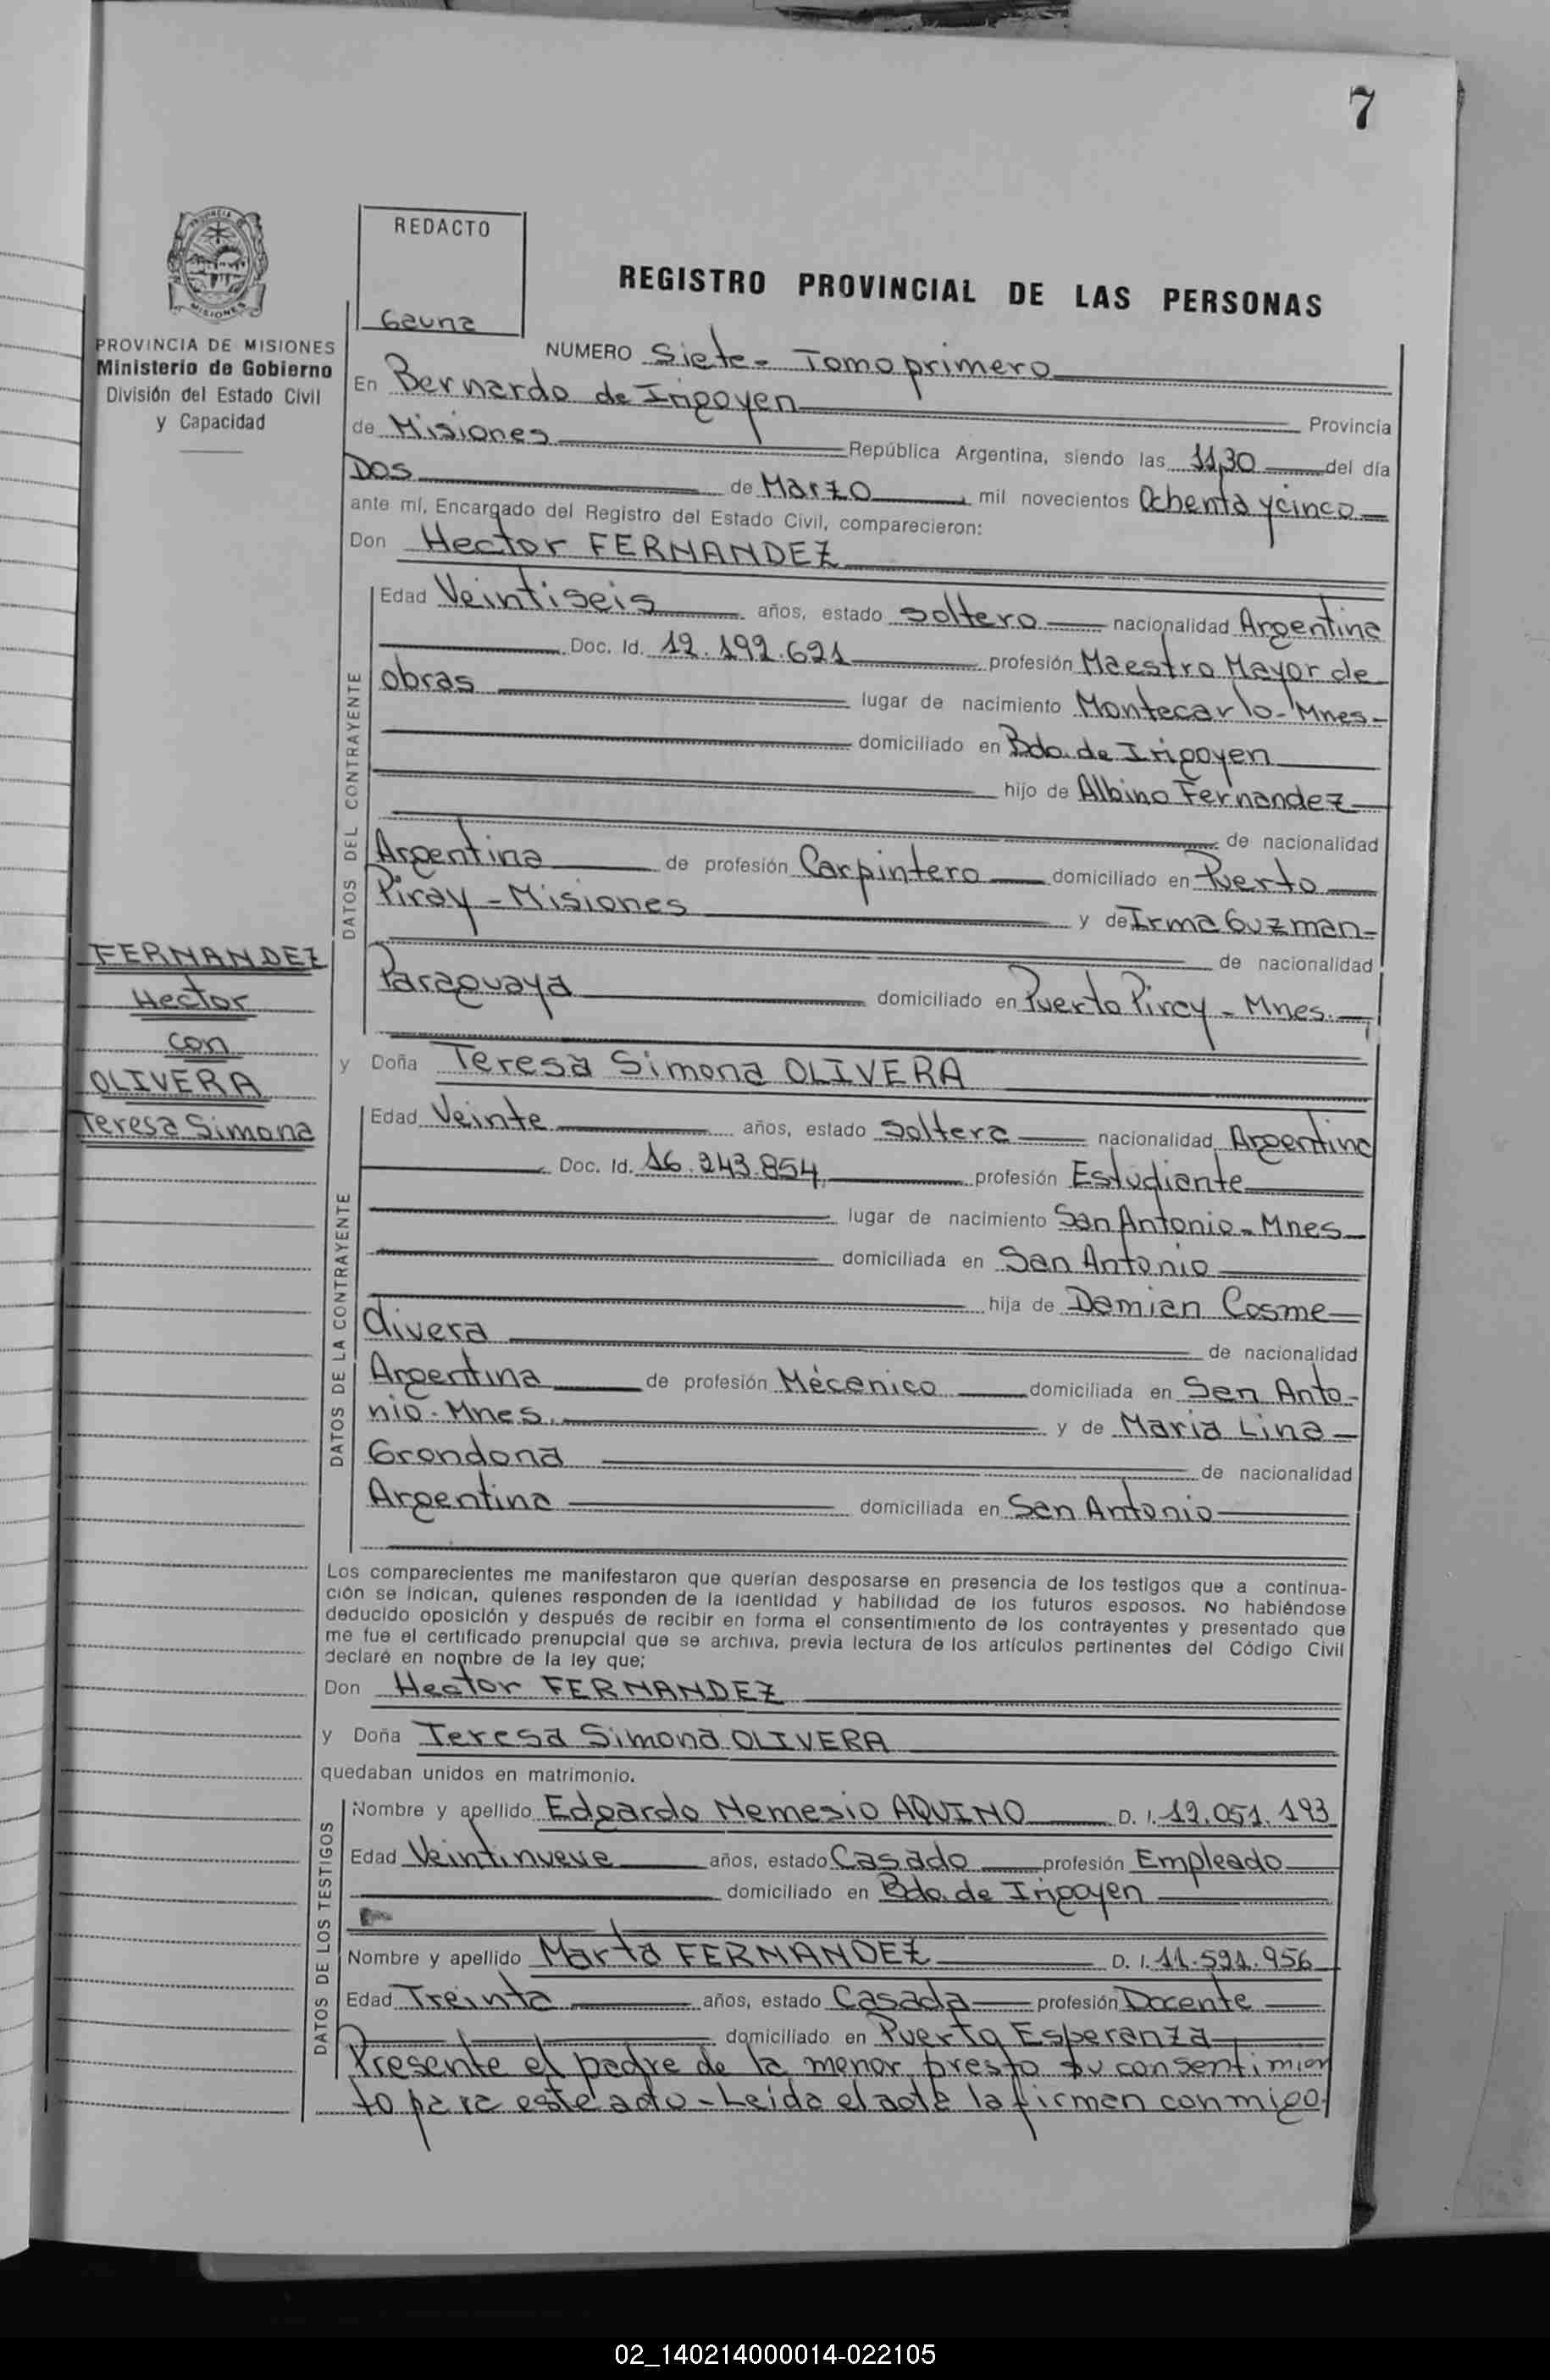 7
REDACTO
Gauna
PROVINCIA DE MISIONES
Ministerio de Gobierno
División del Estado Civil
y Capacidad
REGISTRO PROVINCIAL DE LAS PERSONAS
NUMERO Siete - Tomo primero
En Bernardo de Irigoyen
Provincia
de Misiones República Argentina, siendo las 11,30 del día
Dos de Marzo mil novecientos Ochenta y cinco
ante mí, Encargado del Registro del Estado Civil, comparecieron:
Don Hector FERNANDEZ
DATOS DEL CONTRAYENTE
Edad Veintiseis años, estado soltero nacionalidad Argentina
Doc. Id. 12.192.621 profesión Maestro Mayor de
obras lugar de nacimiento Montecarlo - Mnes -
domiciliado en Bdo. de Irigoyen
hijo de Albino Fernandez
de nacionalidad
Argentina de profesión Carpintero domiciliado en Puerto
Piray - Misiones y de Irma Guzman -
de nacionalidad
Paraguaya domiciliado en Puerto Piray - Mnes.
FERNANDEZ
Hector
con
OLIVERA
Teresa Simona
y Doña Teresa Simona OLIVERA
DATOS DE LA CONTRAYENTE
Edad Veinte años, estado Soltera nacionalidad Argentina
Doc. Id. 16.243.854 profesión Estudiante
lugar de nacimiento San Antonio - Mnes
domiciliada en San Antonio
hija de Damian Cosme
Olivera de nacionalidad
Argentina de profesión Mécanico domiciliada en San Anto-
nio - Mnes. y de Maria Lina
Grondona de nacionalidad
Argentina domiciliada en San Antonio
Los comparecientes me manifestaron que querían desposarse en presencia de los testigos que a continua-
ción se indican, quienes responden de la identidad y habilidad de los futuros esposos. No habiéndose
deducido oposición y después de recibir en forma el consentimiento de los contrayentes y presentado que
me fue el certificado prenupcial que se archiva, previa lectura de los artículos pertinentes del Código Civil
declaré en nombre de la ley que;
Don Hector FERNANDEZ
y Doña Teresa Simona OLIVERA
quedaban unidos en matrimonio.
DATOS DE LOS TESTIGOS
Nombre y apellido Edgardo Nemesio AQUINO D. I. 12.051.193
Edad Veintinueve años, estado Casado profesión Empleado
domiciliado en Bdo. de Irigoyen
Nombre y apellido Marta FERNANDEZ D. I. 11.591.956
Edad Treinta años, estado Casada profesión Docente
domiciliado en Puerto Esperanza
Presente el padre de la menor, presto su consentimien
to para este acto - Leida el acta la firman conmigo.
02_140214000014-022105